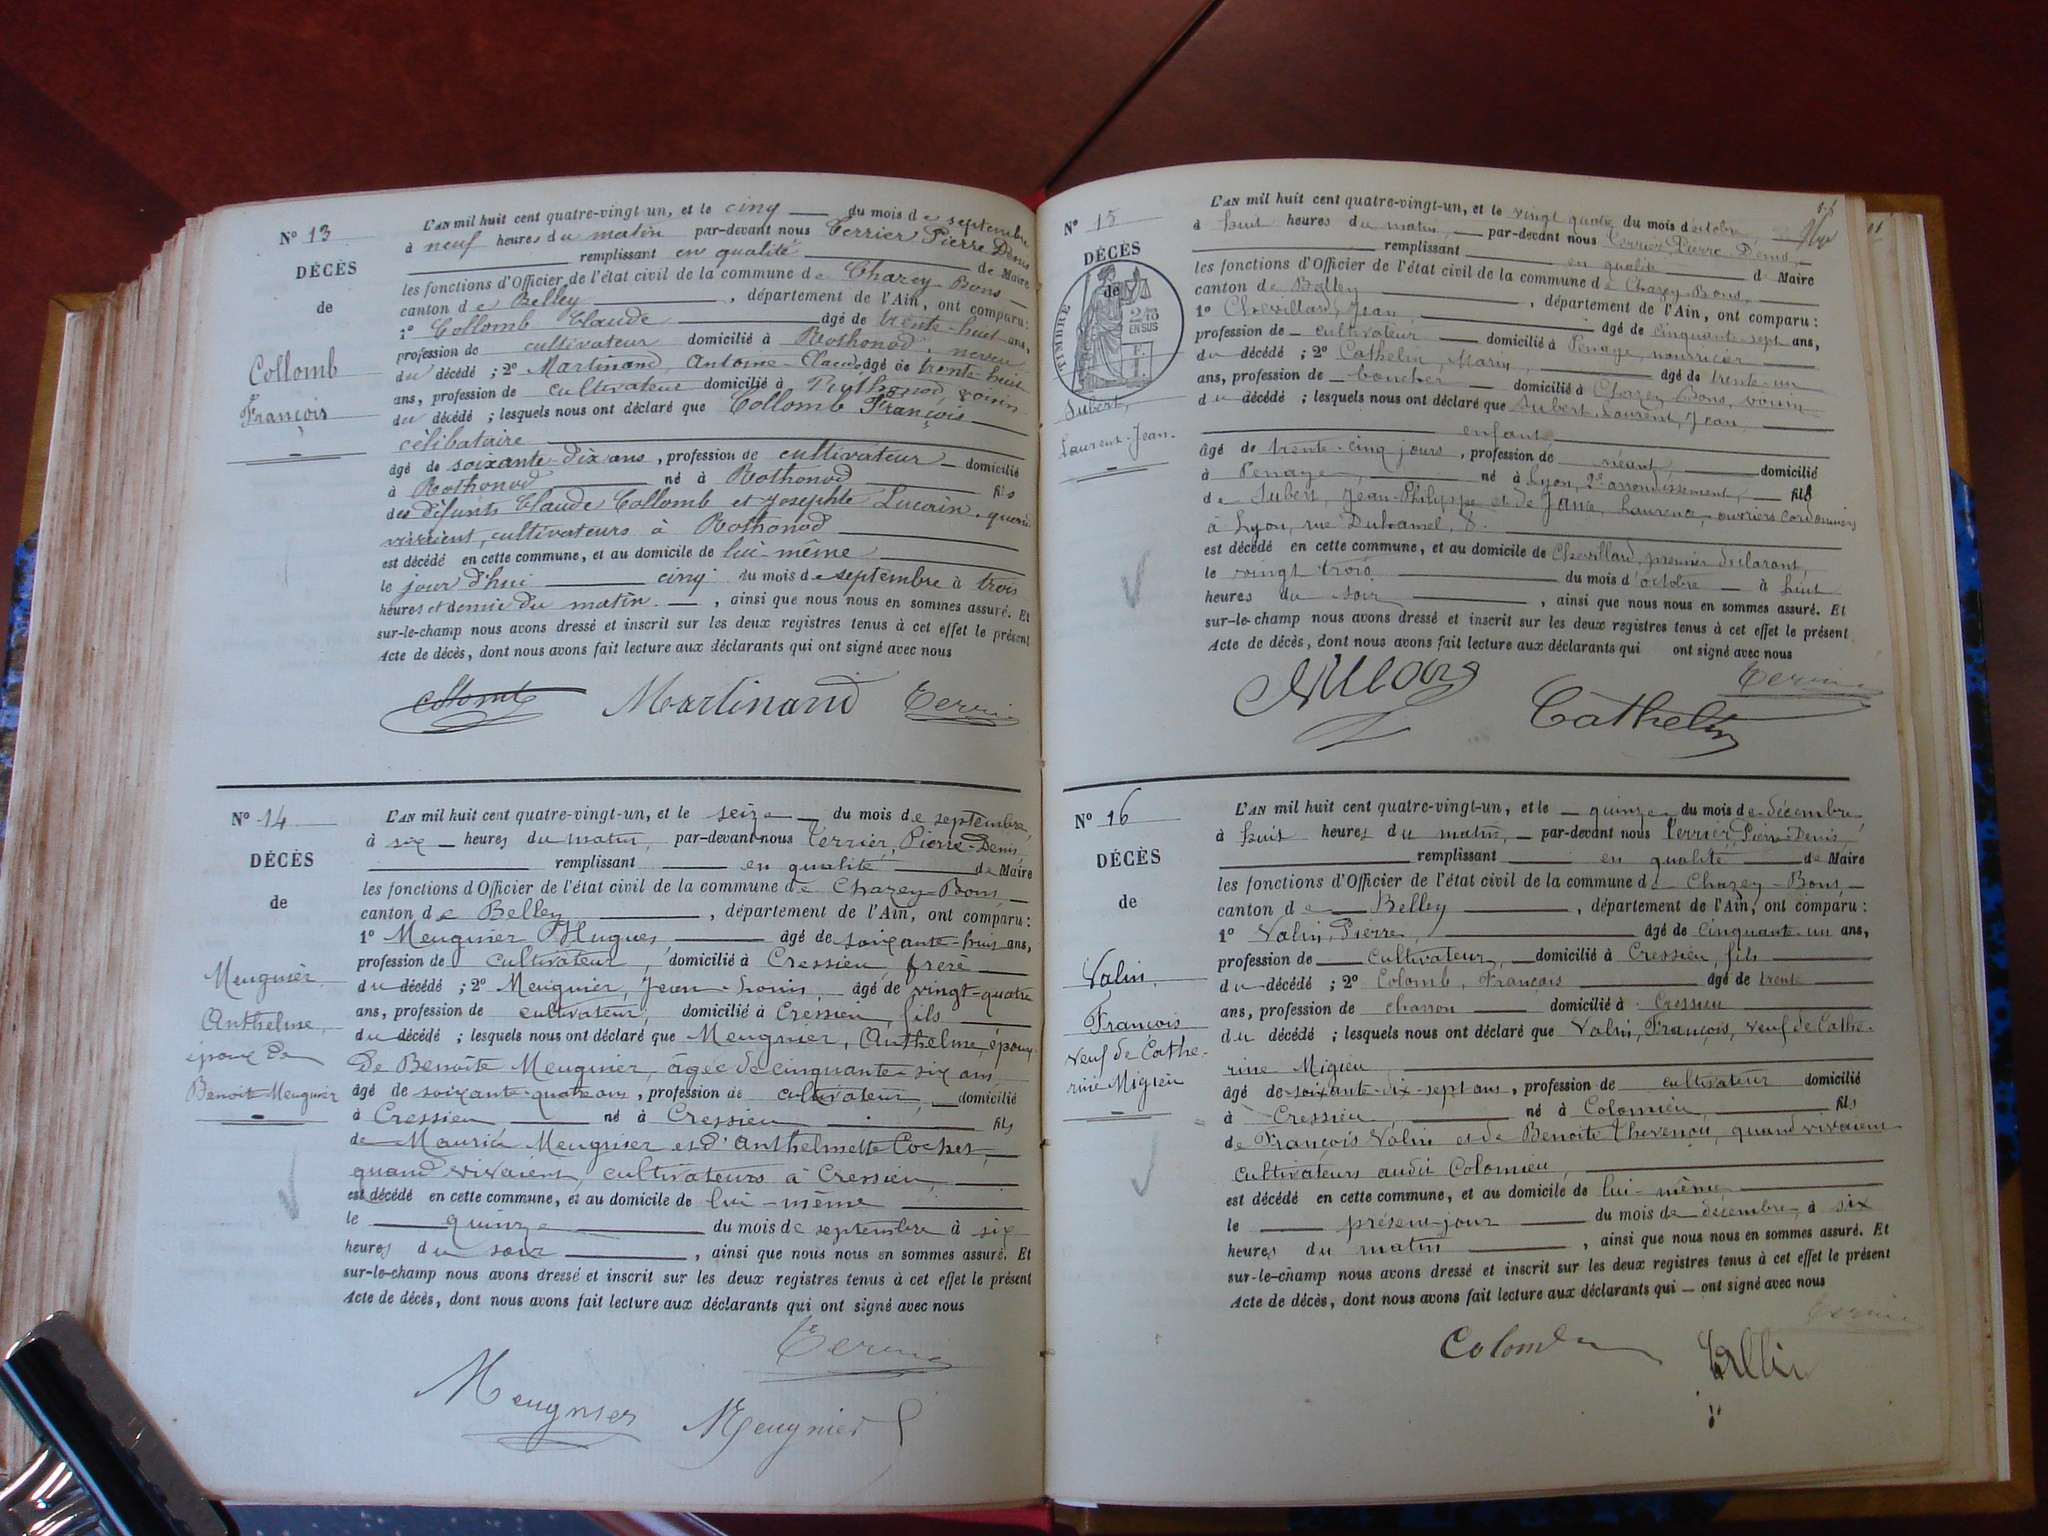 N° 13
DÉCÈS
de
Collomb
François
L'AN mil huit cent quatre-vingt un, et le cinq du mois de septembre
à neuf heures du matin par-devant nous Terrier Pierre Denis
remplissant en qualité de Maire
les fonctions d'Officier de l'état civil de la commune de Chazey-Bons
canton de Belley, département de l'Ain, ont comparu:
1° Collomb Claude âgé de trente-huit ans,
profession de cultivateur domicilié à Rothonod, neveu
du décédé ; 2° Martinand, Antoine-Claude âgé de trente huit
ans, profession de cultivateur domicilié à Rothonod, voisin
du décédé ; lesquels nous ont déclaré que Collomb François
célibataire
âgé de soixante-dix ans, profession de cultivateur domicilié
à Rothonod né à Rothonod fils
des défunts Claude Collomb et Josephte Lucain, quand
vivaient, cultivateurs à Rothonod
est décédé en cette commune, et au domicile de lui-même
le jour d'hui cinq du mois de septembre à trois
heures et demie du matin, ainsi que nous nous en sommes assuré. Et
sur-le-champ nous avons dressé et inscrit sur les deux registres tenus à cet effet le présent
Acte de décès, dont nous avons fait lecture aux déclarants qui ont signé avec nous
Martinand
N° 14
DÉCÈS
de
Meugnier
Anthelme,
époux de
Benoîte Meugnier
L'AN mil huit cent quatre-vingt-un, et le seize du mois de septembre,
à six heures du matin, par-devant nous Terrier, Pierre-Denis,
remplissant en qualité de Maire
les fonctions d'Officier de l'état civil de la commune de Chazey-Bons,
canton de Belley, département de l'Ain, ont comparu:
1° Meugnier Hugues, âgé de soixante-huit ans,
profession de cultivateur, domicilié à Cressieu, frère
du décédé ; 2° Meugnier, Jean-Louis, âgé de vingt-quatre
ans, profession de cultivateur, domicilié à Cressieu, fils
du décédé ; lesquels nous ont déclaré que Meugnier, Anthelme, époux
de Benoîte Meugnier, âgée de cinquante-six ans,
âgé de soixante-quatre ans, profession de cultivateur, domicilié
à Cressieu, né à Cressieu fils
de Maurice Meugnier et d'Anthelmette Cochet,
quand vivaient, cultivateurs à Cressieu,
est décédé en cette commune, et au domicile de lui-même
le quinze du mois de septembre à six
heures du soir, ainsi que nous nous en sommes assuré. Et
sur-le-champ nous avons dressé et inscrit sur les deux registres tenus à cet effet le présent
Acte de décès, dont nous avons fait lecture aux déclarants qui ont signé avec nous
Meugnier
Meugnier
N° 15
DÉCÈS
de
TIMBRE
2/10
EN SUS
Jubert,
Laurent-Jean.
L'AN mil huit cent quatre-vingt-un, et le vingt quatre du mois d'octobre,
à huit heures du matin, par-devant nous Terrier, Pierre-Denis,
remplissant en qualité de Maire
les fonctions d'Officier de l'état civil de la commune de Chazey-Bons,
canton de Belley, département de l'Ain, ont comparu :
1° Chevillard, Jean, âgé de cinquante-sept ans,
profession de cultivateur domicilié à Penaye, nourricier
du décédé ; 2° Cathelin, Marin, âgé de trente-un
ans, profession de boucher domicilié à Chazey-Bons, voisin
du décédé ; lesquels nous ont déclaré que Jubert, Laurent, Jean,
enfant
âgé de trente-cinq jours, profession de néant domicilié
à Penaye, né à Lyon, 2e arrondissement, fils
de Jubert, Jean-Philippe et de Jame, Laurence, ouvriers cordonniers
à Lyon, rue Duhamel, 8.
est décédé en cette commune, et au domicile de Chevillard, premier déclarant,
le vingt trois du mois d'octobre à huit
heures du soir, ainsi que nous nous en sommes assuré. Et
sur-le-champ nous avons dressé et inscrit sur les deux registres tenus à cet effet le présent
Acte de décès, dont nous avons fait lecture aux déclarants qui ont signé avec nous
Cathelin
N° 16
DÉCÈS
de
Valin,
François
veuf de Cathe-
rine Migieu
L'AN mil huit cent quatre-vingt-un, et le quinze du mois de décembre,
à huit heures du matin, par-devant nous Terrier, Pierre-Denis,
remplissant en qualité de Maire
les fonctions d'Officier de l'état civil de la commune de Chazey-Bons,
canton de Belley, département de l'Ain, ont comparu :
1° Valin, Pierre, âgé de cinquante-un ans,
profession de cultivateur, domicilié à Cressieu, fils
du décédé ; 2° Colomb, François âgé de trente
ans, profession de charron domicilié à Cressieu
du décédé ; lesquels nous ont déclaré que Valin, François, veuf de Cathe-
rine Migieu
âgé de soixante-dix-sept ans, profession de cultivateur domicilié
à Cressieu né à Colomieu, fils
de François Valin et de Benoîte Thevenon, quand vivaient
cultivateurs audit Colomieu,
est décédé en cette commune, et au domicile de lui-même
le présent jour du mois de décembre, à six
heures du matin, ainsi que nous nous en sommes assuré. Et
sur-le-champ nous avons dressé et inscrit sur les deux registres tenus à cet effet le présent
Acte de décès, dont nous avons fait lecture aux déclarants qui ont signé avec nous
Colomb